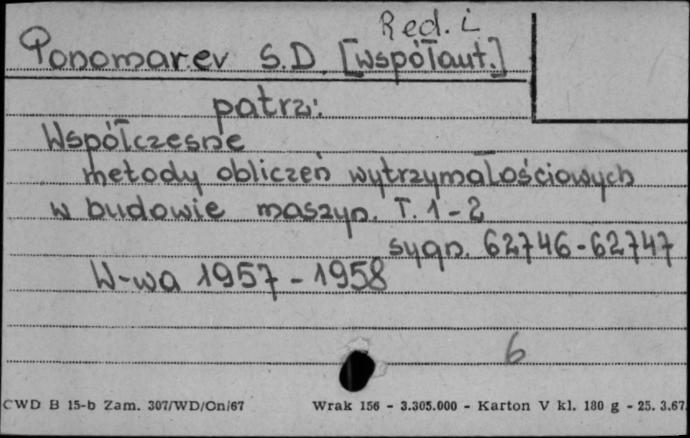 Red. i
Ponomarev S.D. [współaut.]
patrz:
Współczesne
metody obliczeń wytrzymałościowych
w budowie maszyn. T. 1-2
sygn. 62746-62747
W-wa 1957-1958
6
CWD B 15-b Zam. 307/WD/On/67 Wrak 156 - 3.305.000 - Karton V kl. 180 g - 25. 3.67